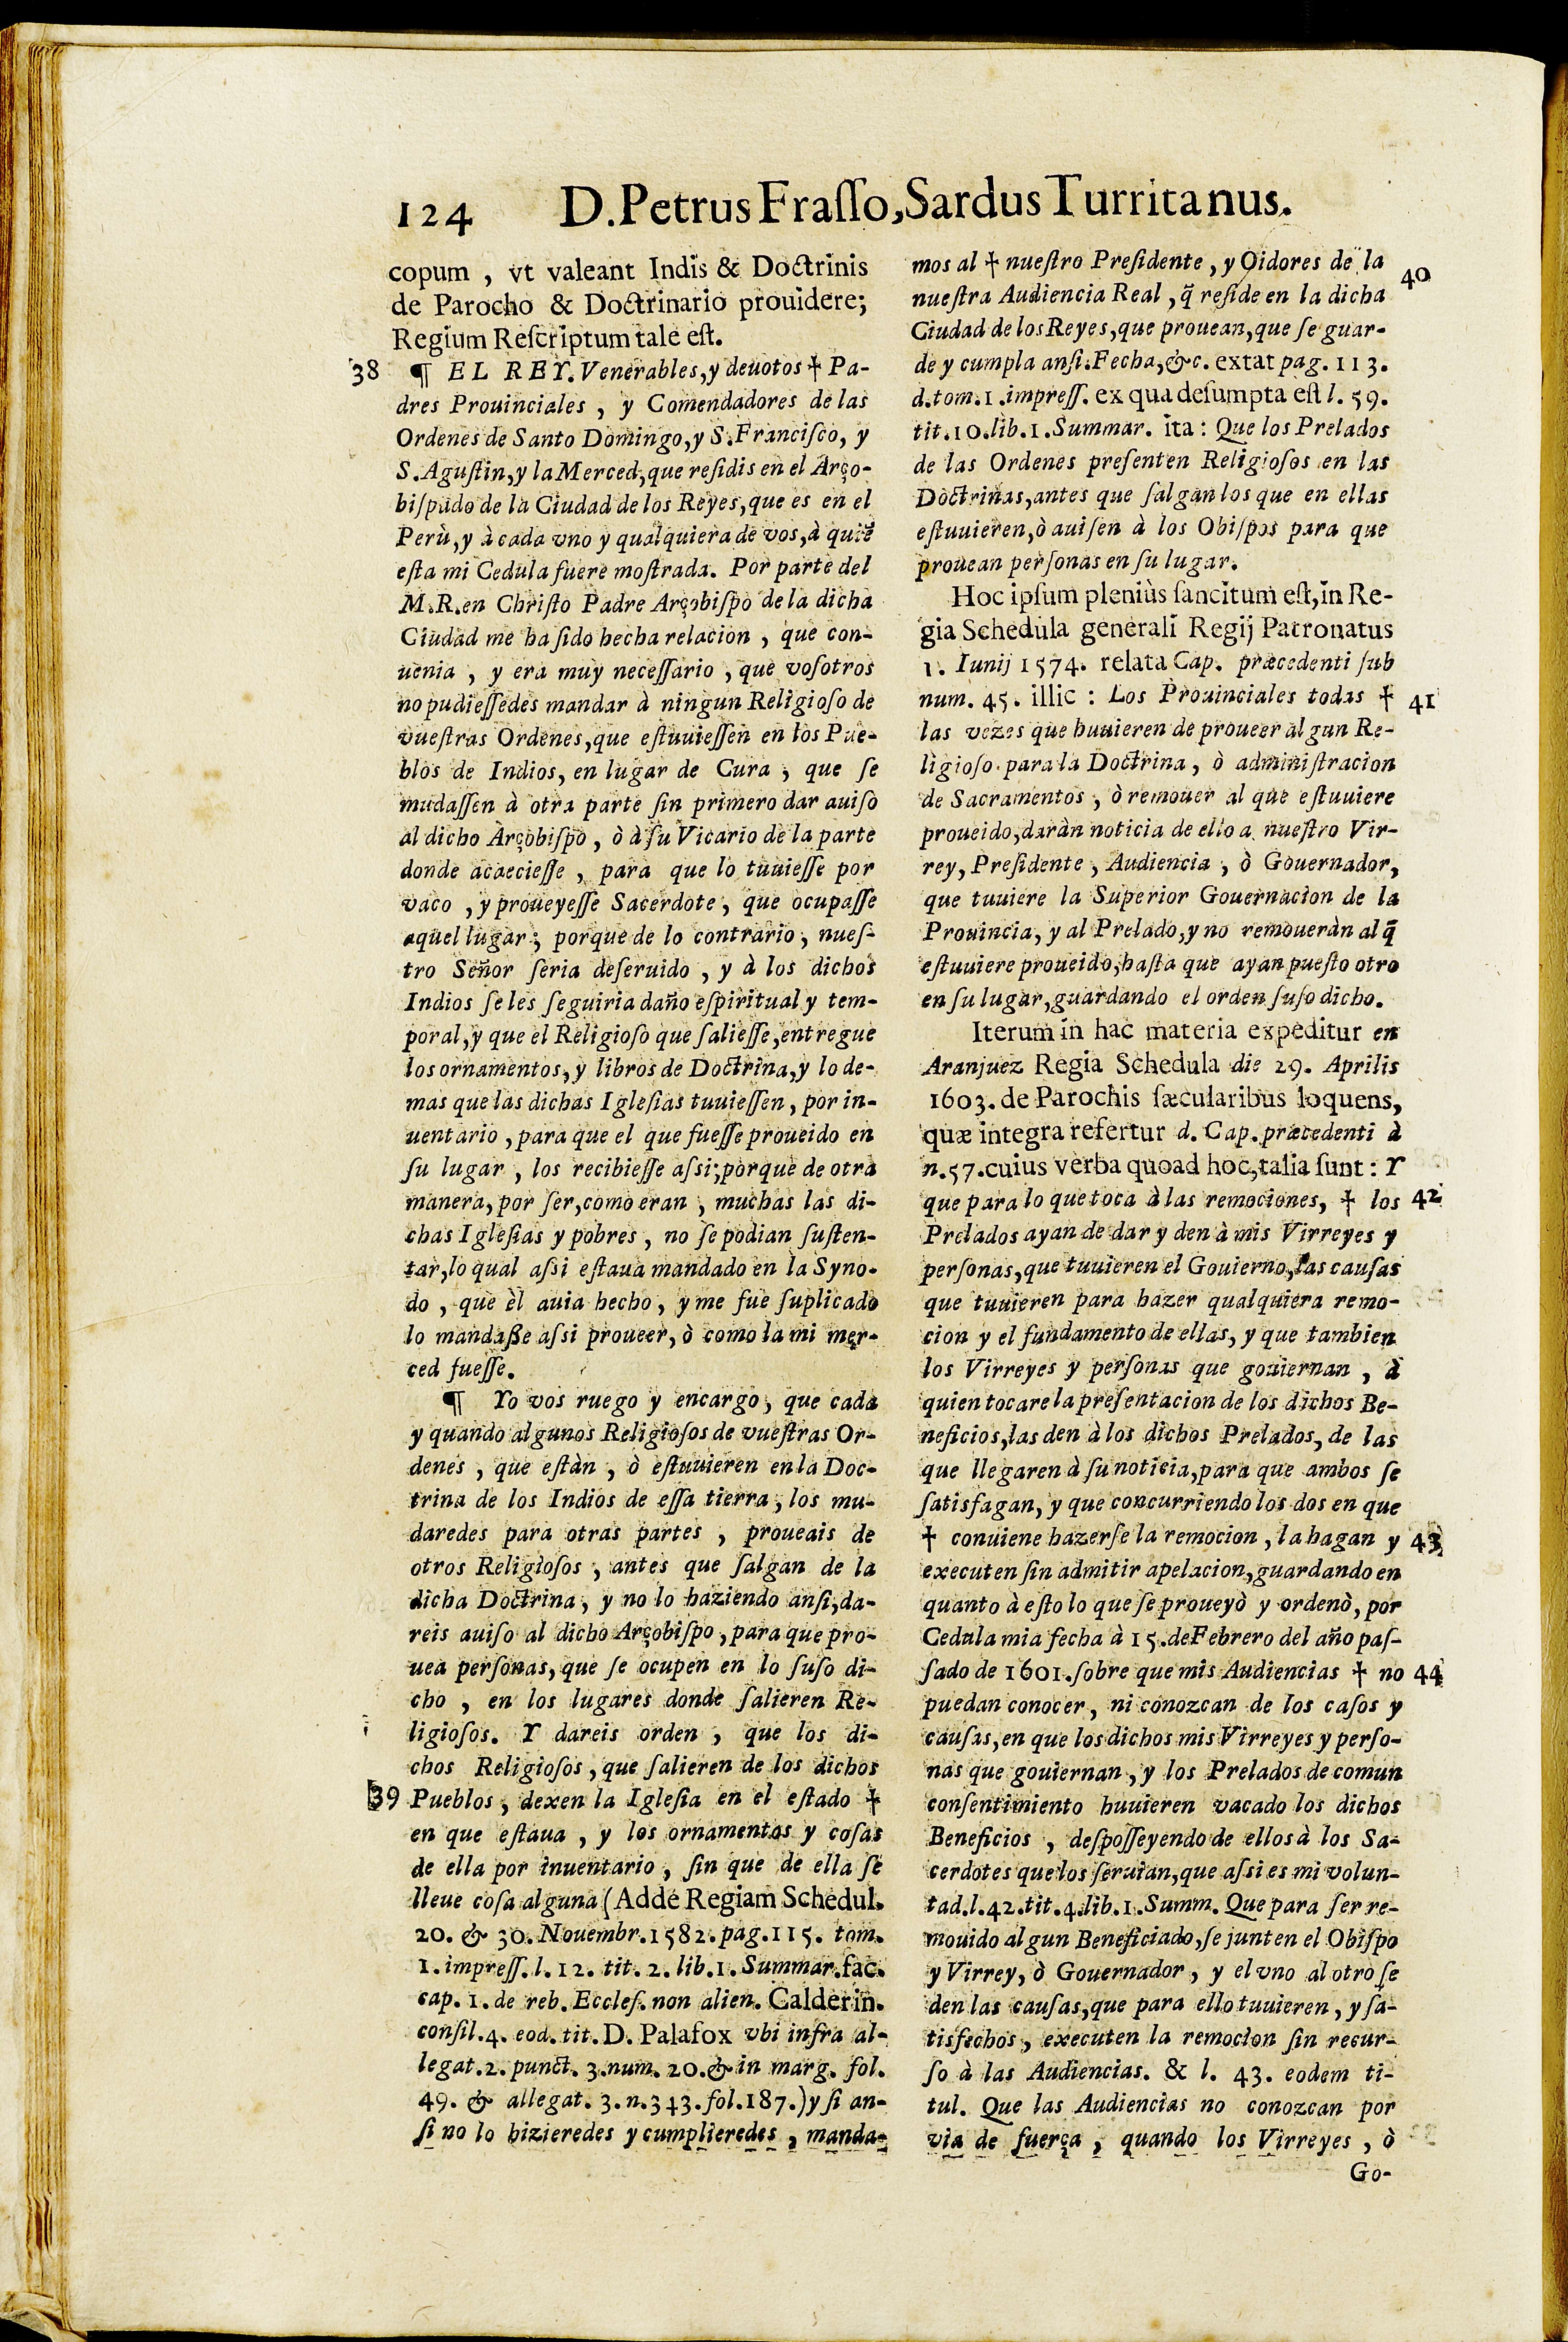 124 D. Petrus Frasso, Sardus Turritanus.
copum , vt valeant Indis & Doctrinis
de Parocho & Doctrinario prouidere;
Regium Reſcriptum tale eſt.
38 ¶ EL REY. Venerables, y deuotos † Pa-
dres Prouinciales , y Comendadores de las
Ordenes de Santo Domingo, y S. Franciſco, y
S. Aguſtin, y la Merced, que reſidis en el Arço-
biſpado de la Ciudad de los Reyes, que es en el
Perù, y à cada vno y qualquiera de vos, à quiẽ
eſta mi Cedula fuere moſtrada. Por parte del
M. R. en Chriſto Padre Arçobiſpo de la dicha
Ciudad me ha ſido hecha relacion , que con-
uenia , y era muy neceſſario , que voſotros
no pudieſſedes mandar à ningun Religioſo de
vueſtras Ordenes, que eſtuuieſſen en los Pue-
blos de Indios, en lugar de Cura , que ſe
mudaſſen à otra parte ſin primero dar auiſo
al dicho Arçobiſpo , ò à ſu Vicario de la parte
donde acaecieſſe , para que lo tuuieſſe por
vaco , y proueyeſſe Sacerdote, que ocupaſſe
aquel lugar ; porque de lo contrario , nueſ-
tro Señor ſeria deſeruido , y à los dichos
Indios ſe les ſeguiria daño eſpiritual y tem-
poral, y que el Religioſo que ſalieſſe, entregue
los ornamentos, y libros de Doctrina, y lo de-
mas que las dichas Igleſias tuuieſſen, por in-
uentario , para que el que fueſſe proueido en
ſu lugar , los recibieſſe aſsi; porque de otra
manera, por ſer, como eran , muchas las di-
chas Igleſias y pobres , no ſe podian ſuſten-
tar, lo qual aſsi eſtaua mandado en la Syno-
do , que èl auia hecho, y me fue ſuplicado
lo mandaße aſsi proueer, ò como la mi mer-
ced fueſſe.
¶ Yo vos ruego y encargo, que cada
y quando algunos Religioſos de vueſtras Or-
denes , que eſtàn , ò eſtuuieren en la Doc-
trina de los Indios de eſſa tierra, los mu-
daredes para otras partes , proueais de
otros Religioſos , antes que ſalgan de la
dicha Doctrina, y no lo haziendo anſi, da-
reis auiſo al dicho Arçobiſpo, para que pro-
uea perſonas, que ſe ocupen en lo ſuſo di-
cho , en los lugares donde ſalieren Re-
ligioſos. Y dareis orden , que los di-
chos Religioſos, que ſalieren de los dichos
39 Pueblos, dexen la Igleſia en el eſtado †
en que eſtaua , y los ornamentos y coſas
de ella por inuentario, ſin que de ella ſe
lleue coſa alguna (Adde Regiam Schedul.
20. & 30. Nouembr. 1582. pag. 115. tom.
1. impreſſ. l. 12. tit. 2. lib. 1. Summar. fac.
cap. 1. de reb. Eccleſ. non alien. Calderin.
conſil. 4. eod. tit. D. Palafox vbi infra al-
legat. 2. punct. 3. num. 20. & in marg. fol.
49. & allegat. 3. n. 343. fol. 187.) y ſi an-
ſi no lo hizieredes y cumplieredes , manda-
mos al † nueſtro Preſidente , y Oidores de la 40
nueſtra Audiencia Real , q̃ reſide en la dicha
Ciudad de los Reyes, que prouean, que ſe guar-
de y cumpla anſi. Fecha, &c. extat pag. 113.
d. tom. 1. impreſſ. ex qua deſumpta eſt l. 59.
tit. 10. lib. 1. Summar. ita : Que los Prelados
de las Ordenes preſenten Religioſos en las
Doctrinas, antes que ſalgan los que en ellas
eſtuuieren, ò auiſen à los Obiſpos para que
prouean perſonas en ſu lugar.
Hoc ipſum pleniùs ſancitum eſt, in Re-
gia Schedula generali Regij Patronatus
1. Iunij 1574. relata Cap. præcedenti ſub
num. 45. illic : Los Prouinciales todas † 41
las vezes que huuieren de proueer algun Re-
ligioſo para la Doctrina, ò adminiſtracion
de Sacramentos , ò remouer al que eſtuuiere
proueido, daràn noticia de ello a nueſtro Vir-
rey, Preſidente , Audiencia , ò Gouernador,
que tuuiere la Superior Gouernacion de la
Prouincia, y al Prelado, y no remoueràn al q̃
eſtuuiere proueido, haſta que ayan pueſto otro
en ſu lugar, guardando el orden ſuſo dicho.
Iterum in hac materia expeditur en
Aranjuez Regia Schedula die 29. Aprilis
1603. de Parochis ſæcularibus loquens,
quæ integra refertur d. Cap. præcedenti à
n. 57. cuius verba quoad hoc, talia ſunt : Y
que para lo que toca à las remociones, † los 42
Prelados ayan de dar y den à mis Virreyes y
perſonas, que tuuieren el Gouierno, las cauſas
que tuuieren para hazer qualquiera remo-
cion y el fundamento de ellas, y que tambien
los Virreyes y perſonas que gouiernan , à
quien tocare la preſentacion de los dichos Be-
neficios, las den à los dichos Prelados, de las
que llegaren à ſu noticia, para que ambos ſe
ſatisfagan, y que concurriendo los dos en que
† conuiene hazerſe la remocion, la hagan y 43
executen ſin admitir apelacion, guardando en
quanto à eſto lo que ſe proueyò y ordenò, por
Cedula mia fecha à 15. de Febrero del año paſ-
ſado de 1601. ſobre que mis Audiencias † no 44
puedan conocer, ni conozcan de los caſos y
cauſas, en que los dichos mis Virreyes y perſo-
nas que gouiernan, y los Prelados de comun
conſentimiento huuieren vacado los dichos
Beneficios , deſpoſſeyendo de ellos à los Sa-
cerdotes que los ſeruian, que aſsi es mi volun-
tad. l. 42. tit. 4. lib. 1. Summ. Que para ſer re-
mouido algun Beneficiado, ſe junten el Obiſpo
y Virrey, ò Gouernador, y el vno al otro ſe
den las cauſas, que para ello tuuieren, y ſa-
tisfechos, executen la remocion ſin recur-
ſo à las Audiencias. & l. 43. eodem ti-
tul. Que las Audiencias no conozcan por
via de fuerça , quando los Virreyes , ò
Go-